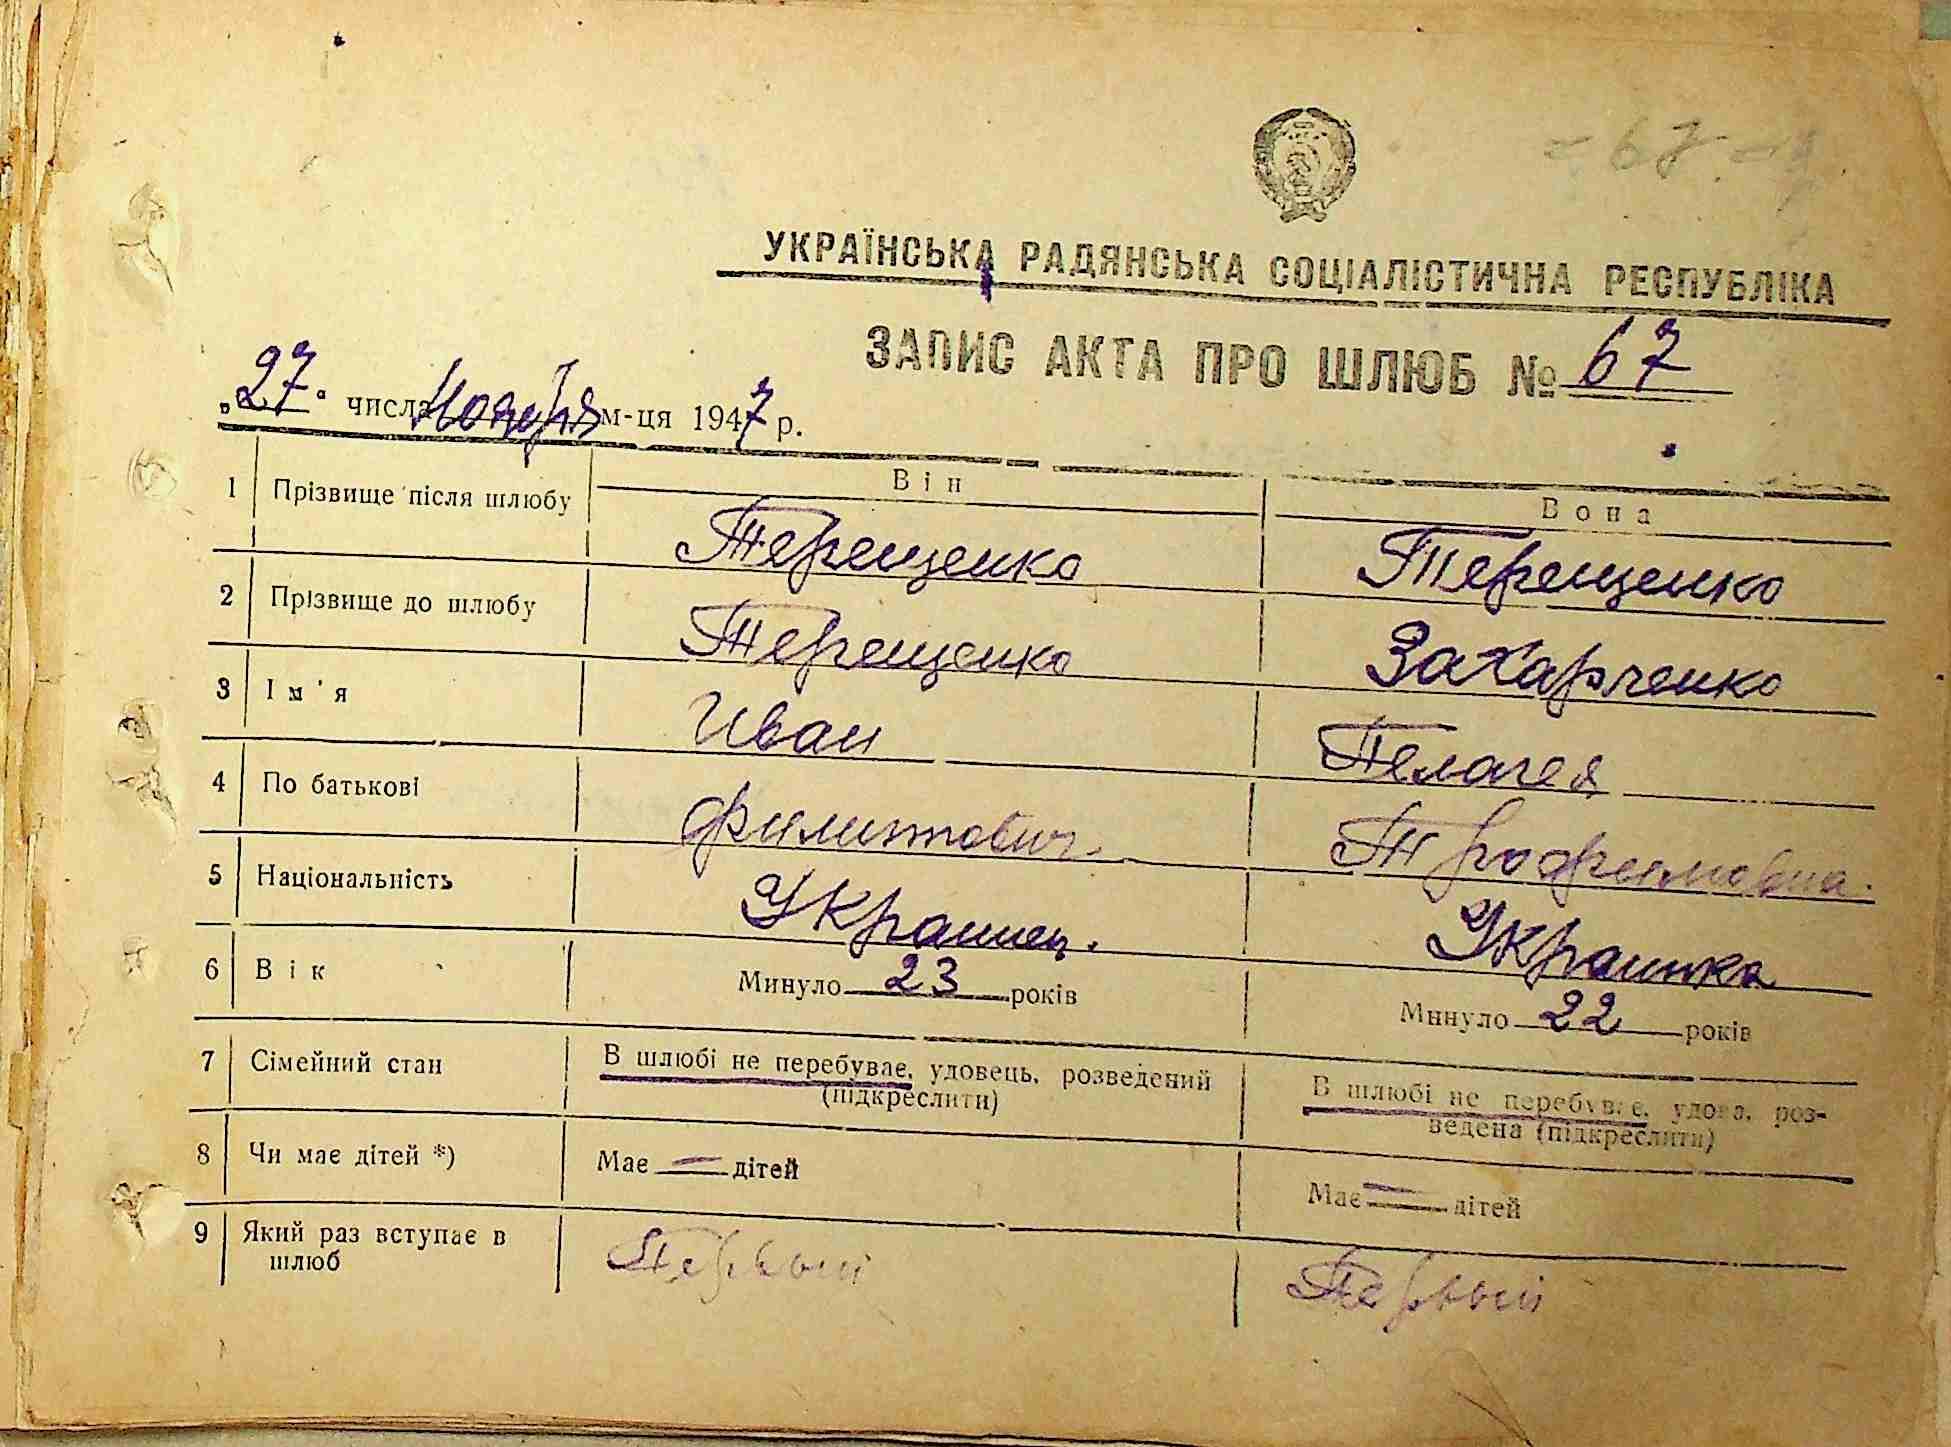 - 67 -
УКРАЇНСЬКА РАДЯНСЬКА СОЦІАЛІСТИЧНА РЕСПУБЛІКА
ЗАПИС АКТА ПРО ШЛЮБ № 67
„27" числа Ноября м-ця 1947 р.
Він Вона
1 Прізвище після шлюбу Терещенко Терещенко
2 Прізвище до шлюбу Терещенко Захарченко
3 Ім'я Иван Пелагея
4 По батькові Филиппович. Трофимовна.
5 Національність Украинец. Украинка
6 Вік Минуло 23 років Минуло 22 років
7 Сімейний стан В шлюбі не перебуває, удовець, розведений В шлюбі не перебуває, удова, роз-
(підкреслити) ведена (підкреслити)
8 Чи має дітей *) Має — дітей Має — дітей
9 Який раз вступає в Первый Первый
шлюб